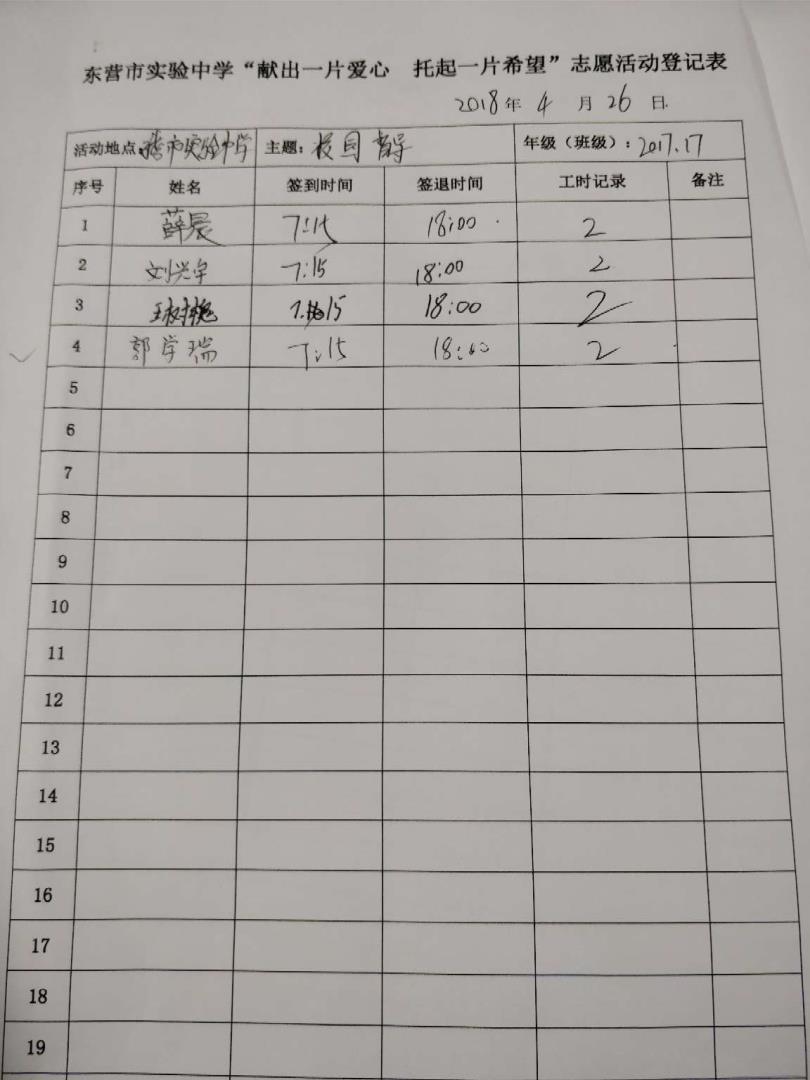 东营市实验中学“献出一片爱心 托起一片希望”志愿活动登记表
2018年 4 月 26 日
活动地点:东营市实验中学 主题:校园督导 年级(班级):2017.17
序号 姓名 签到时间 签退时间 工时记录 备注
1 薛晨 7:15 18:00 2
2 刘兴宇 7:15 18:00 2
3 7:15 18:00 2
4 郭学瑞 7:15 18:00 2
5
6
7
8
9
10
11
12
13
14
15
16
17
18
19